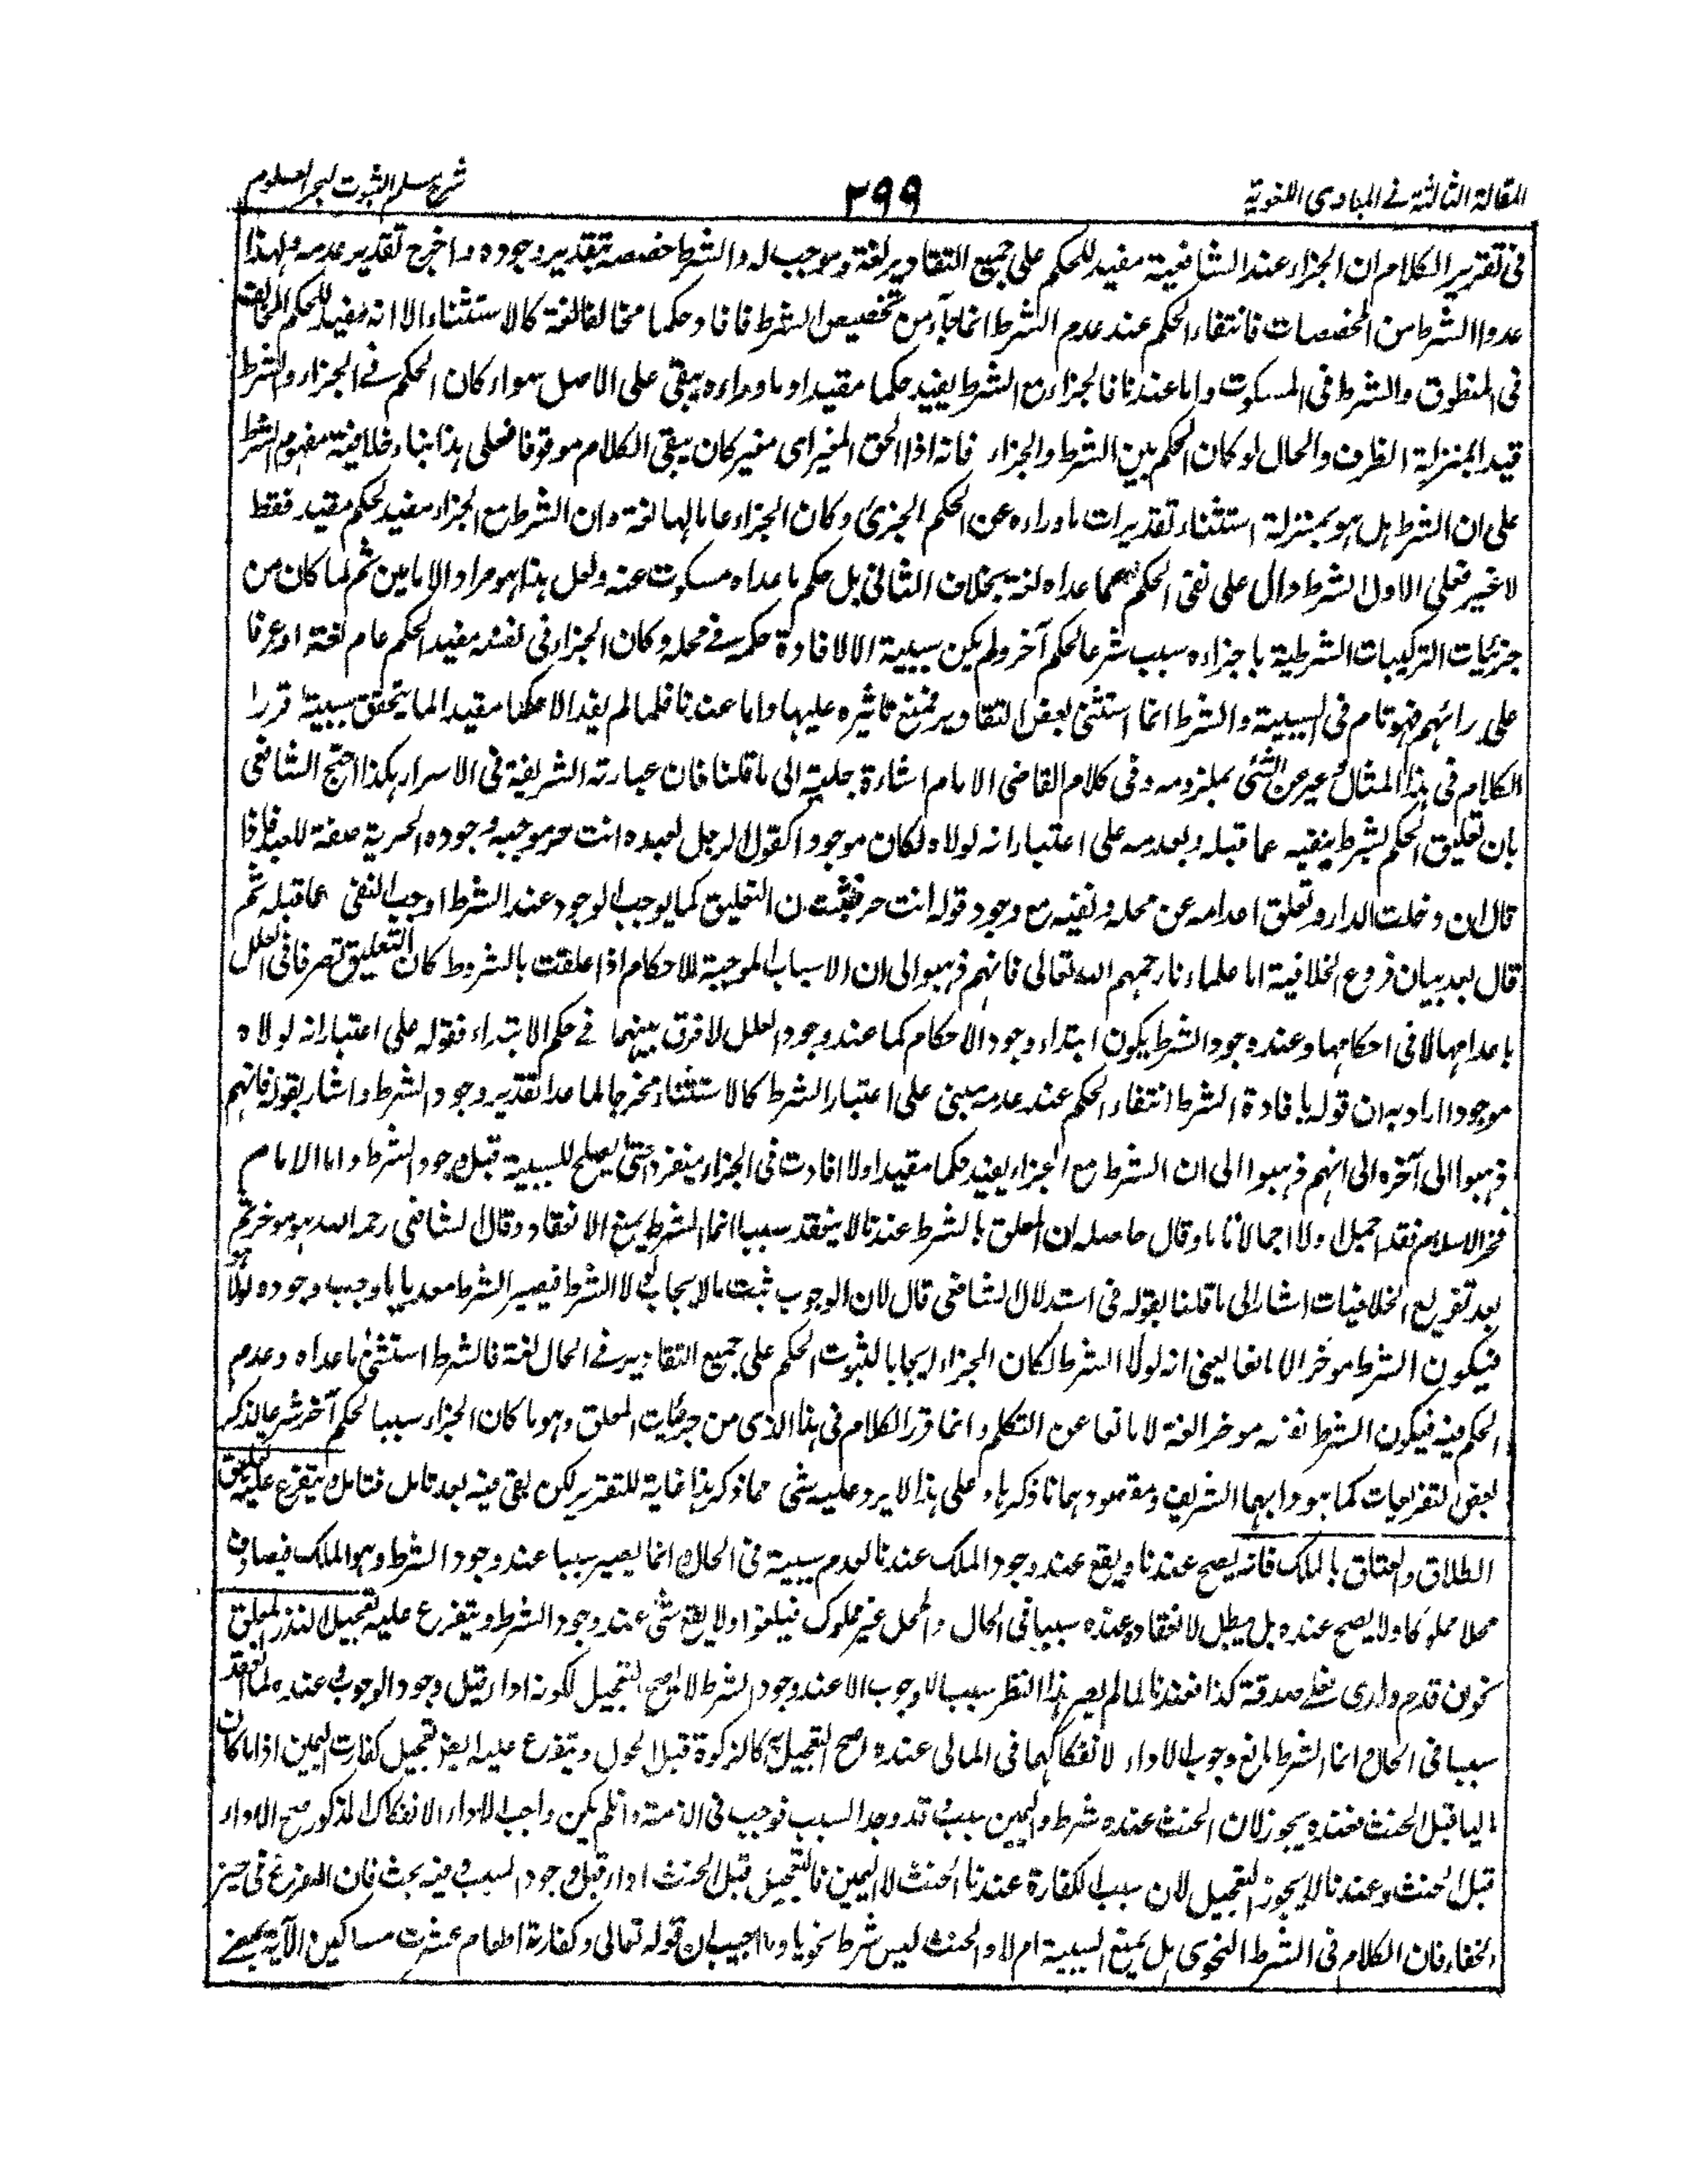 المقالة الثالثة فى المبادى اللغوية
٢٩٩
شرح مسلم الثبوت لبحر العلوم
فى تقرير الكلام ان الجزاء عند الشافعية مفيد للحكم على جميع التقادير لغة وموجب له والشرط خصصه بتقدير وجوده واخرج تقدير عدمه ولهذا
عدوا الشرط من المخصصات فانتفاء الحكم عند عدم الشرط انما جاء من تخصيص الشرط فافاد حكما مخالفا لغة كالاستثناء الا انه مفيد للحكم المخالف
فى المنطوق والشرط فى المسكوت واما عندنا فالجزاء مع الشرط يفيد حكما مقيدا وما وراءه يبقى على الاصل سواء كان الحكم فے الجزاء والشرط
قيدا بمنزلة الظرف والحال او كان الحكم بين الشرط والجزاء فانه اذا الحق المغير اى مغير كان يبقى الكلام موقوفا فعلى هذا بناء خلافية مفهوم الشرط
على ان الشرط هل هو بمنزلة استثناء تقديرات ما وراءه عن الحكم الجزئى وكان الجزاء عاما لها لغة وان الشرط مع الجزاء مفيد لحكم مقيد فقط
لا غير فعلى الاول الشرط دال على نفى الحكم عما عداه لغة بخلاف الثانى بل حكم ما عداه مسكوت عنه ولعل هذا هو مراد الامامين ثم لما كان من
جزئيات التركيبات الشرطية ما جزاءه سبب شرعا لحكم آخر ولم يكن سببية الا لافادة حكمه فے محله وكان الجزاء فى نفسه مفيد الحكم عام لغة او عرفا
على رائهم فهو تام فى السببية والشرط انما استثنى بعض التقادير فمنع تاثيره عليها واما عندنا فلما لم يفد الا حكما مقيدا لما يتحقق سببية قررا
الكلام فى هذا المثال وعبر عن الشئ بملزومه وفى كلام القاضى الامام اشارة جلية الى ما قلنا فان عبارته الشريفة فى الاسرار هكذا احتج الشافعى
بان تعليق الحكم بشرط ينفيه عما قبله وبعدمه على اعتبار انه لولاه لكان موجودا كقول الرجل لعبده انت حر موجبه وجوده الحرية صفة للعبد فاذا
قال ان دخلت الدار وتعلق اعدامه عن محله ونفيه مع وجود قوله انت حر فثبت ان التعليق كما يوجب الوجود عند الشرط اوجب النفى عما قبله ثم
قال بعد بيان فروع الخلافية اما علماءنا رحمهم الله تعالى فانهم ذهبوا الى ان الاسباب الموجبة للاحكام اذا علقت بالشروط كان التعليق تصرفا فى العلل
باعدامها لا فى احكامها وعند وجود الشرط يكون ابتداء وجود الاحكام كما عند وجود العلل لا فرق بينهما فے حكم الابتداء فقوله على اعتبار انه لولاه
موجودا اراد به ان قوله بافادة الشرط انتفاء الحكم عند عدمه مبنى على اعتبار الشرط كالاستثناء مخرجا لما عدا تقدير وجود الشرط واشار بقوله فانهم
ذهبوا الى آخره الى انهم ذهبوا الى ان الشرط مع الجزاء يفيد حكما مقيدا ولا افادت فى الجزاء منفردا حتى يصلح للسببية قبل وجود الشرط واما الامام
فخر الاسلام فقد اجمل اولا اجمالا تاما وقال حاصله ان المعلق بالشرط عندنا لا ينعقد سببا انما الشرط يمنع الانعقاد وقال الشافعى رحمه الله هو موخر ثم
بعد تفريع الخلافيات اشار الى ما قلنا بقوله فى استدلال الشافعى قال لان الوجوب ثبت بالايجاب لولا الشرط فيصير الشرط معدما ما وجب وجوده لولا هو
فيكون الشرط موخرا لا مانعا يعنى انه لولا الشرط لكان الجزاء ايجابا لثبوت الحكم على جميع التقادير فے الحال لغة فالشرط استثنى ما عداه وعدم
الحكم فيه فيكون الشرط نفسه موخرا لغة لا مانعا عن التكلم وانما قرر الكلام فى هذا الذى من جزئيات المعلق وهو ما كان الجزاء سببا لحكم آخر شرعا لذكر
بعض التفريعات كما هو دابهما الشريف ومقصودهما ما ذكرنا وعلى هذا لا يرد عليه شئ مما ذكر هذا غاية للتقرير لكن بقى فيه بعد تامل فتامل ويتفرع عليه تعليق
الطلاق والعتاق بالملك فانه يصح عندنا ويقع عند وجود الملك عندنا لعدم سببية فى الحال انما يصير سببا عند وجود الشرط وهو الملك فيصادف
محلا مملوكا ولا يصح عنده بل يبطل لانعقاده عنده سببا فى الحال والمحل غير مملوك فيلغوا ولا يقع شئ عند وجود الشرط ويتفرع عليه تعجيل النذر المعلق
نحو ان قدم ولدى فعلى صدقة كذا فعندنا لما لم يصر هذا النظر سببا للوجوب الا عند وجود الشرط لا يصح التعجيل لكونه اداء قبل وجود الوجوب وعنده لما انعقد
سببا فى الحال انما الشرط مانع وجوب الاداء لانفكاكهما فى المالى عنده صح التعجيل كالزكوة قبل الحول ويتفرع عليه ايضا تعجيل كفارت اليمين اذا ما كان
ماليا قبل الحنث فعنده يجوز لان الحنث عنده شرط واليمين سبب وقد وجد السبب فوجب فى الذمة وان لم يكن واجب الاداء للانفكاك المذكور صح الاداء
قبل الحنث وعندنا لا يجوز التعجيل لان سبب الكفارة عندنا الحنث لا اليمين فالتعجيل قبل الحنث اداء قبل وجود السبب وفيه بحث فان التفريع فى حيز
الخفاء فان الكلام فى الشرط النحوى هل يمنع السببية ام لا والحنث ليس شرط نحويا وما اجيب ان قوله تعالى وكفارة اطعام عشرت مساكين الآية بمعنے